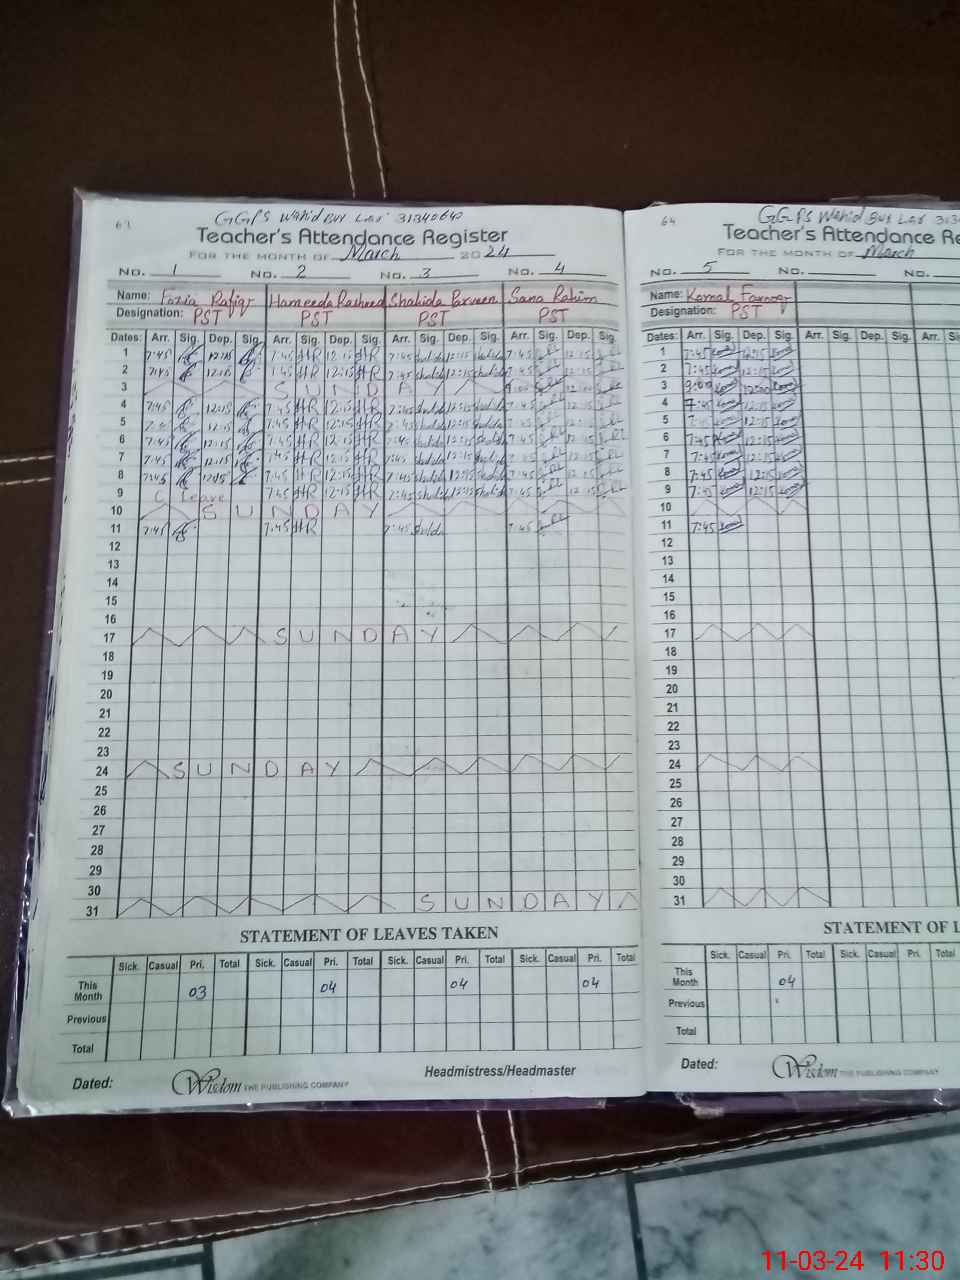 63
GGPS Wahid Bux Lar 31340640
Teacher's Attendance Register
FOR THE MONTH OF March 2024
No. 1 No. 2 No. 3 No. 4
Name: Fozia Rafiq Hameeda Rasheed Shahida Parveen Sana Rahim
Designation: PST PST PST PST
Dates: Arr. Sig. Dep. Sig. Arr. Sig. Dep. Sig. Arr. Sig. Dep. Sig. Arr. Sig. Dep. Sig.
1 7:45 12:15 7:45 HR 12:15 HR 7:45 12:15 7:45 12:15
2 7:45 12:15 7:45 HR 12:15 HR 7:45 12:15 7:45 12:15
3 S U N D A 9:00 12:00
4 7:45 12:15 7:45 HR 12:15 HR 7:45 12:15 7:45 12:15
5 7:45 12:15 7:45 HR 12:15 HR 7:45 12:15 7:45 12:15
6 7:45 12:15 7:45 HR 12:15 HR 7:45 12:15 7:45 12:15
7 7:45 12:15 7:45 HR 12:15 HR 7:45 12:15 7:45 12:15
8 7:45 12:15 7:45 HR 12:15 HR 7:45 12:15 7:45 12:15
9 C Leave 7:45 HR 12:15 HR 7:45 12:15 7:45 12:15
10 S U N D A Y
11 7:45 7:45 HR 7:45 7:45
12
13
14
15
16
17 S U N D A Y
18
19
20
21
22
23
24 S U N D A Y
25
26
27
28
29
30
31 S U N D A Y
STATEMENT OF LEAVES TAKEN
Sick. Casual Pri. Total Sick. Casual Pri. Total Sick. Casual Pri. Total Sick. Casual Pri. Total
This Month 03 04 04 04
Previous
Total
Headmistress/Headmaster
Dated: Wisdom THE PUBLISHING COMPANY
64
GGPS Wahid Bux Lar 313
Teacher's Attendance Re
FOR THE MONTH OF March
No. 5 No. No.
Name: Komal Farooq
Designation: PST
Dates: Arr. Sig. Dep. Sig. Arr. Sig. Dep. Sig. Arr. Si
1 7:45 12:15
2 7:45 12:15
3 9:00 12:00
4 7:45 12:15
5 7:45 12:15
6 7:45 12:15
7 7:45 12:15
8 7:45 12:15
9 7:45 12:15
10
11 7:45
12
13
14
15
16
17
18
19
20
21
22
23
24
25
26
27
28
29
30
31
STATEMENT OF L
Sick. Casual Pri. Total Sick. Casual Pri. Total
This Month 04
Previous
Total
Dated: Wisdom THE PUBLISHING COMPANY
11-03-24 11:30